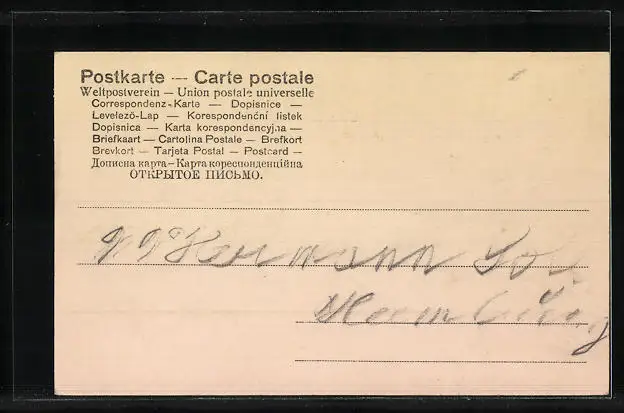 Postkarte — Carte postale
Weltpostverein — Union postale universelle
Correspondenz-Karte — Dopisnice —
Levelező-Lap — Korespondenční lístek
Dopisnica — Karta korespondencyjna —
Briefkaart — Cartolina Postale — Brefkort
Brevkort — Tarjeta Postal — Postcard —
Дописна карта — Карта кореспонденційна
ОТКРЫТОЕ ПИСЬМО.
Hermann